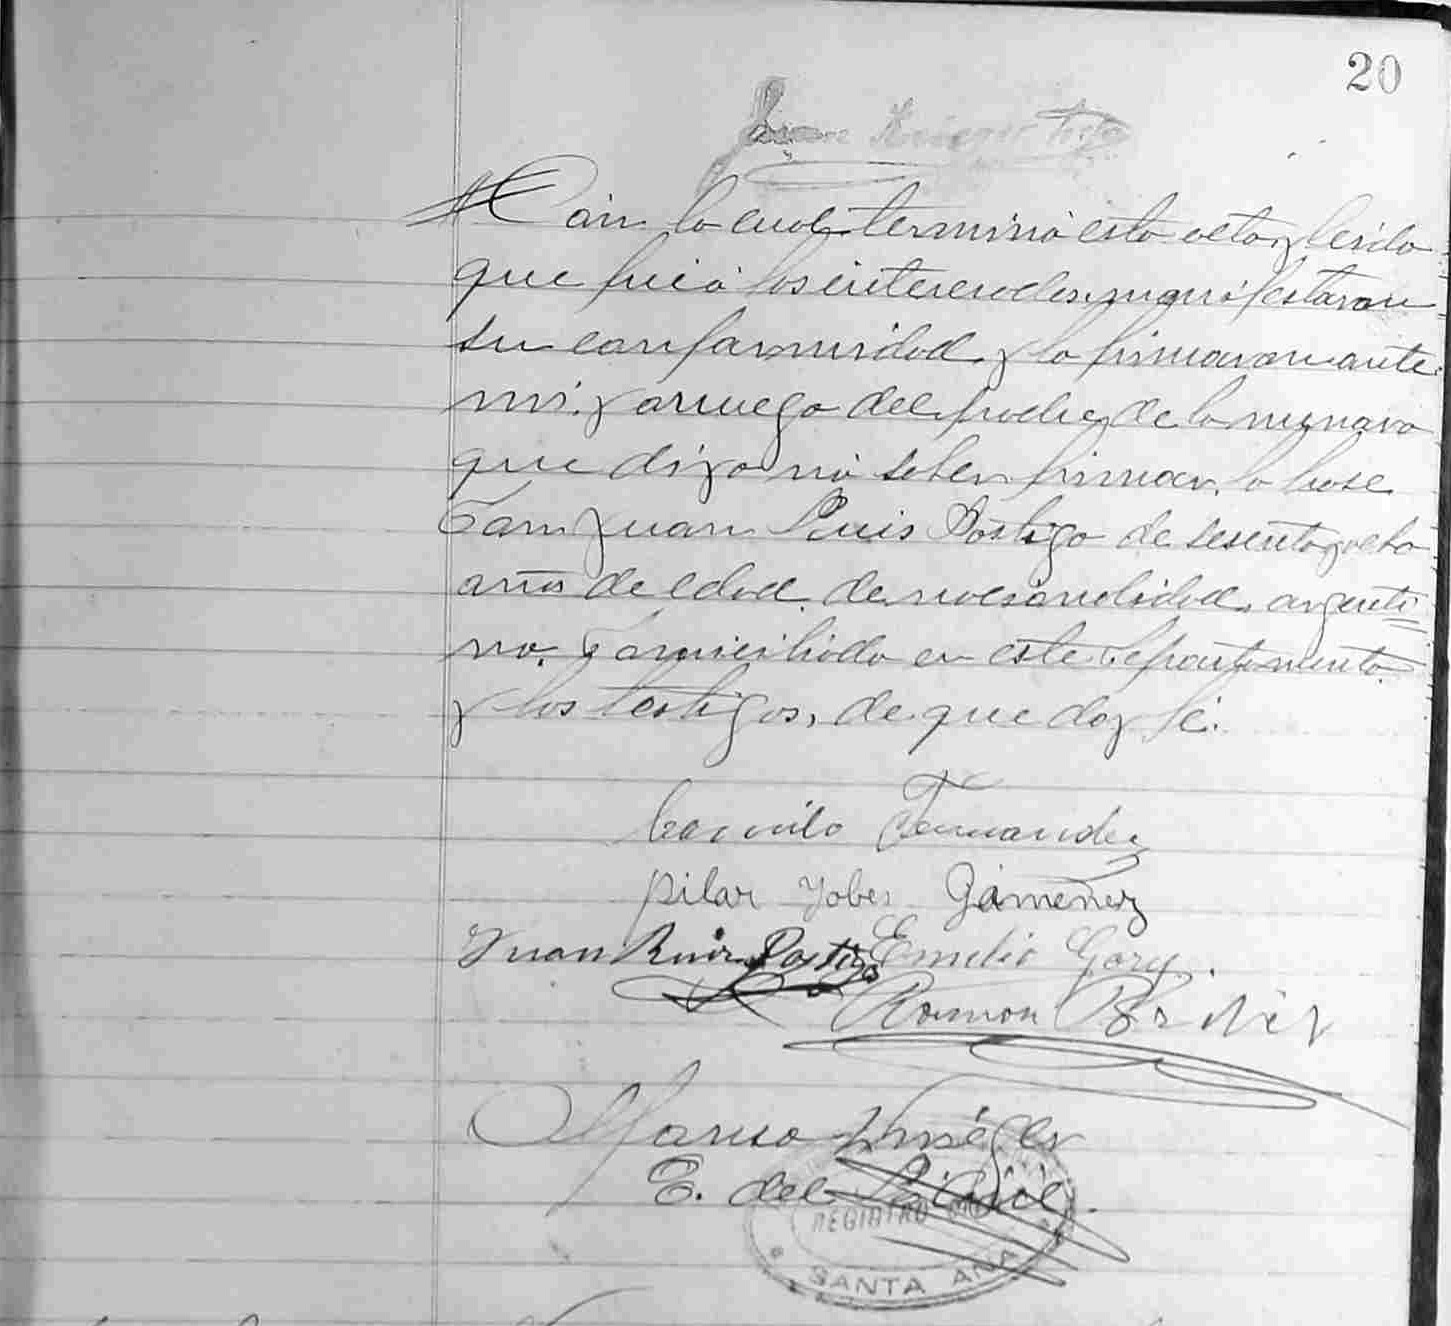 20
Con lo cual terminó esta acta, y leida
que fué á los interesados, manifestaron
su conformidad y la firmaron ante
mi, y á ruego del padre de la menora
que dijo no saber firmar, lo hace
Don Juan Ruis Postigo de sesenta y ocho
años de edad, de nacionalidad, argenti=
no, Domiciliado en este departamento
y los testigos, de que doy fé.
Camilo Fernandez
Pilar Yobes Gimenez
Juan Ruiz Postigo Emilio Gory.
Ramon
E. del
REGISTRO
SANTA ANA